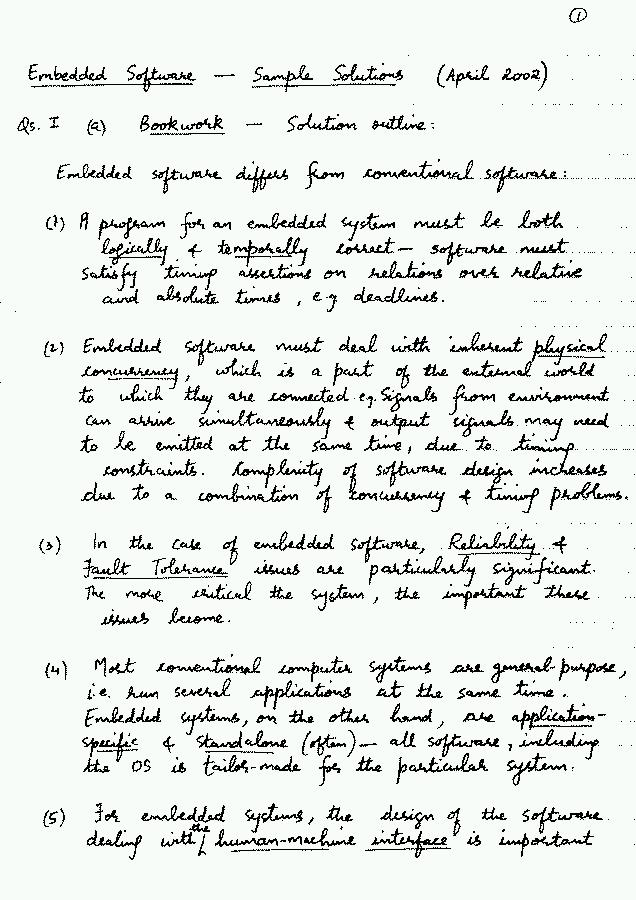 1
Embedded Software — Sample Solutions (April 2002)
Qs. I (a) Bookwork — Solution outline:
Embedded software differs from conventional software:
(1) A program for an embedded system must be both
logically & temporally correct — software must
satisfy timing assertions on relations over relative
and absolute times, e.g deadlines.
(2) Embedded software must deal with inherent physical
concurrency, which is a part of the external world
to which they are connected e.g. Signals from environment
can arrive simultaneously & output signals may need
to be emitted at the same time, due to timing
constraints. Complexity of software design increases
due to a combination of concurrency & timing problems.
(3) In the case of embedded software, Reliability &
Fault Tolerance issues are particularly significant.
The more critical the system, the important these
issues become.
(4) Most conventional computer systems are general-purpose,
i.e. run several applications at the same time.
Embedded systems, on the other hand, are application-
specific & standalone (often) — all software, including
the OS is tailor-made for the particular system.
(5) For embedded systems, the design of the software
dealing with the human-machine interface is important